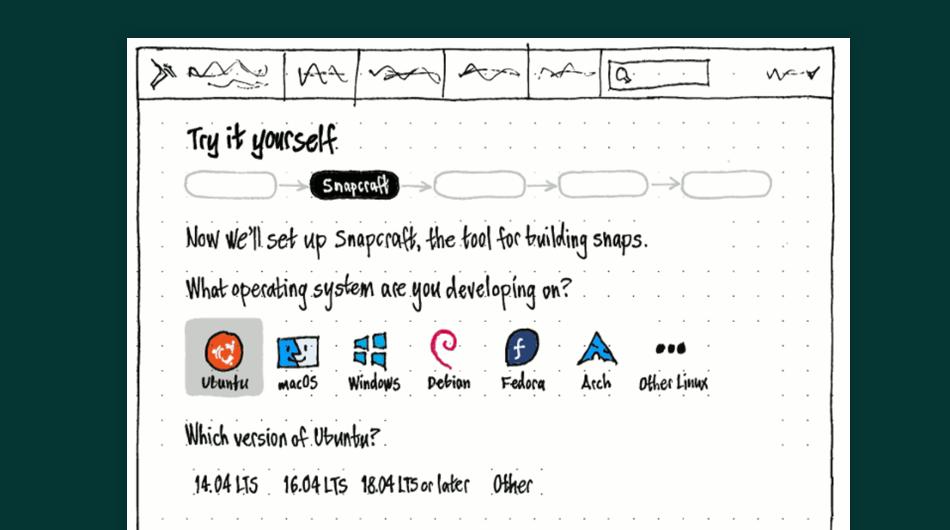 Try it yourself
Snapcraft
Now we'll set up Snapcraft, the tool for building snaps.
What operating system are you developing on?
Ubuntu macOS Windows Debian Fedora Arch Other Linux
Which version of Ubuntu?
14.04 LTS 16.04 LTS 18.04 LTS or later Other